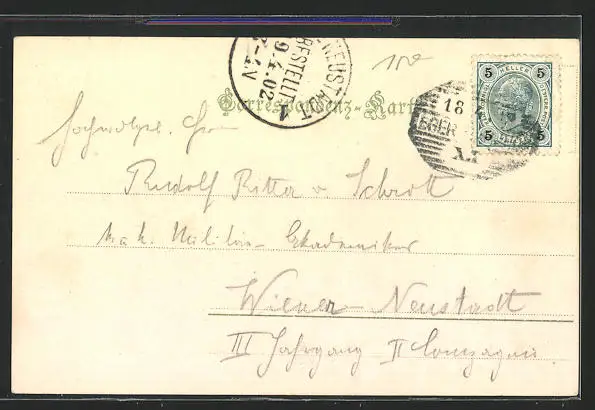 NEUSTADT
BESTELLT
9.4.02
1
5 HELLER 5
5 5
18
EGER
Correspondenz-Karte
Hochwolgeb. Herr
Rudolf Ritter v Schrott
k.u.k. Militär-Akademiker
Wiener-Neustadt
III Jahrgang II Compagnie